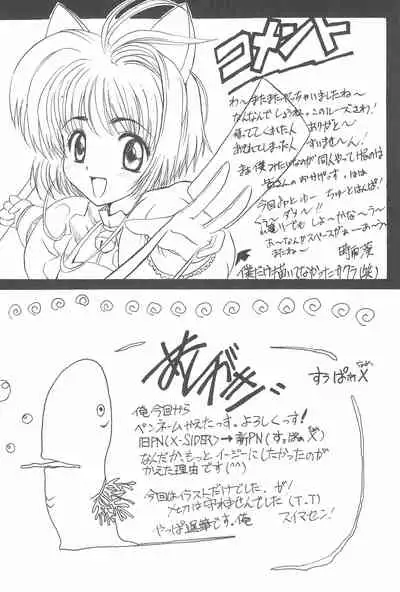 コメント
わ〜またまたやっちゃいましたね〜
なんなんでしょうね。このルーズさわ!
待っててくれた人 ありがと〜
おせわしてしまった人 すいませ〜ん!
まぁ僕みたいなのが同人やって行けるのは
皆さんのおかげです。はは
今回ちょっとゆー ちゅーとはんぱ!
う〜 ダメ〜!!
書いても しょ〜がな〜う〜
あ〜なんかスペースがぁ〜あ〜う〜
またね〜
僕だけ描いてなかったサクラ(笑)
あとがき
すっぱねX
俺今回から
ペンネームかえたっす。よろしくっす!
旧PN(X-SIDER)→新PN(すっぱねX)
なんだかもっとイージーにしたかったのが
かえた理由です(^^)
今回はイラストだけでした。が!
〆切は守れませんでした(T.T)
やっぱ遅筆です。俺 スイマセン!